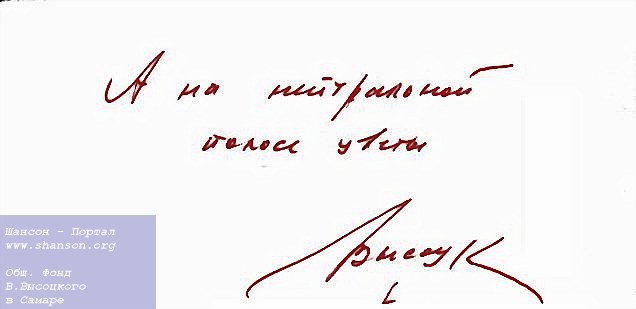 А на нейтральной
полосе цветы
Высоцк
Шансон - Портал
www.shanson.org
Общ. Фонд
В.Высоцкого
в Самаре